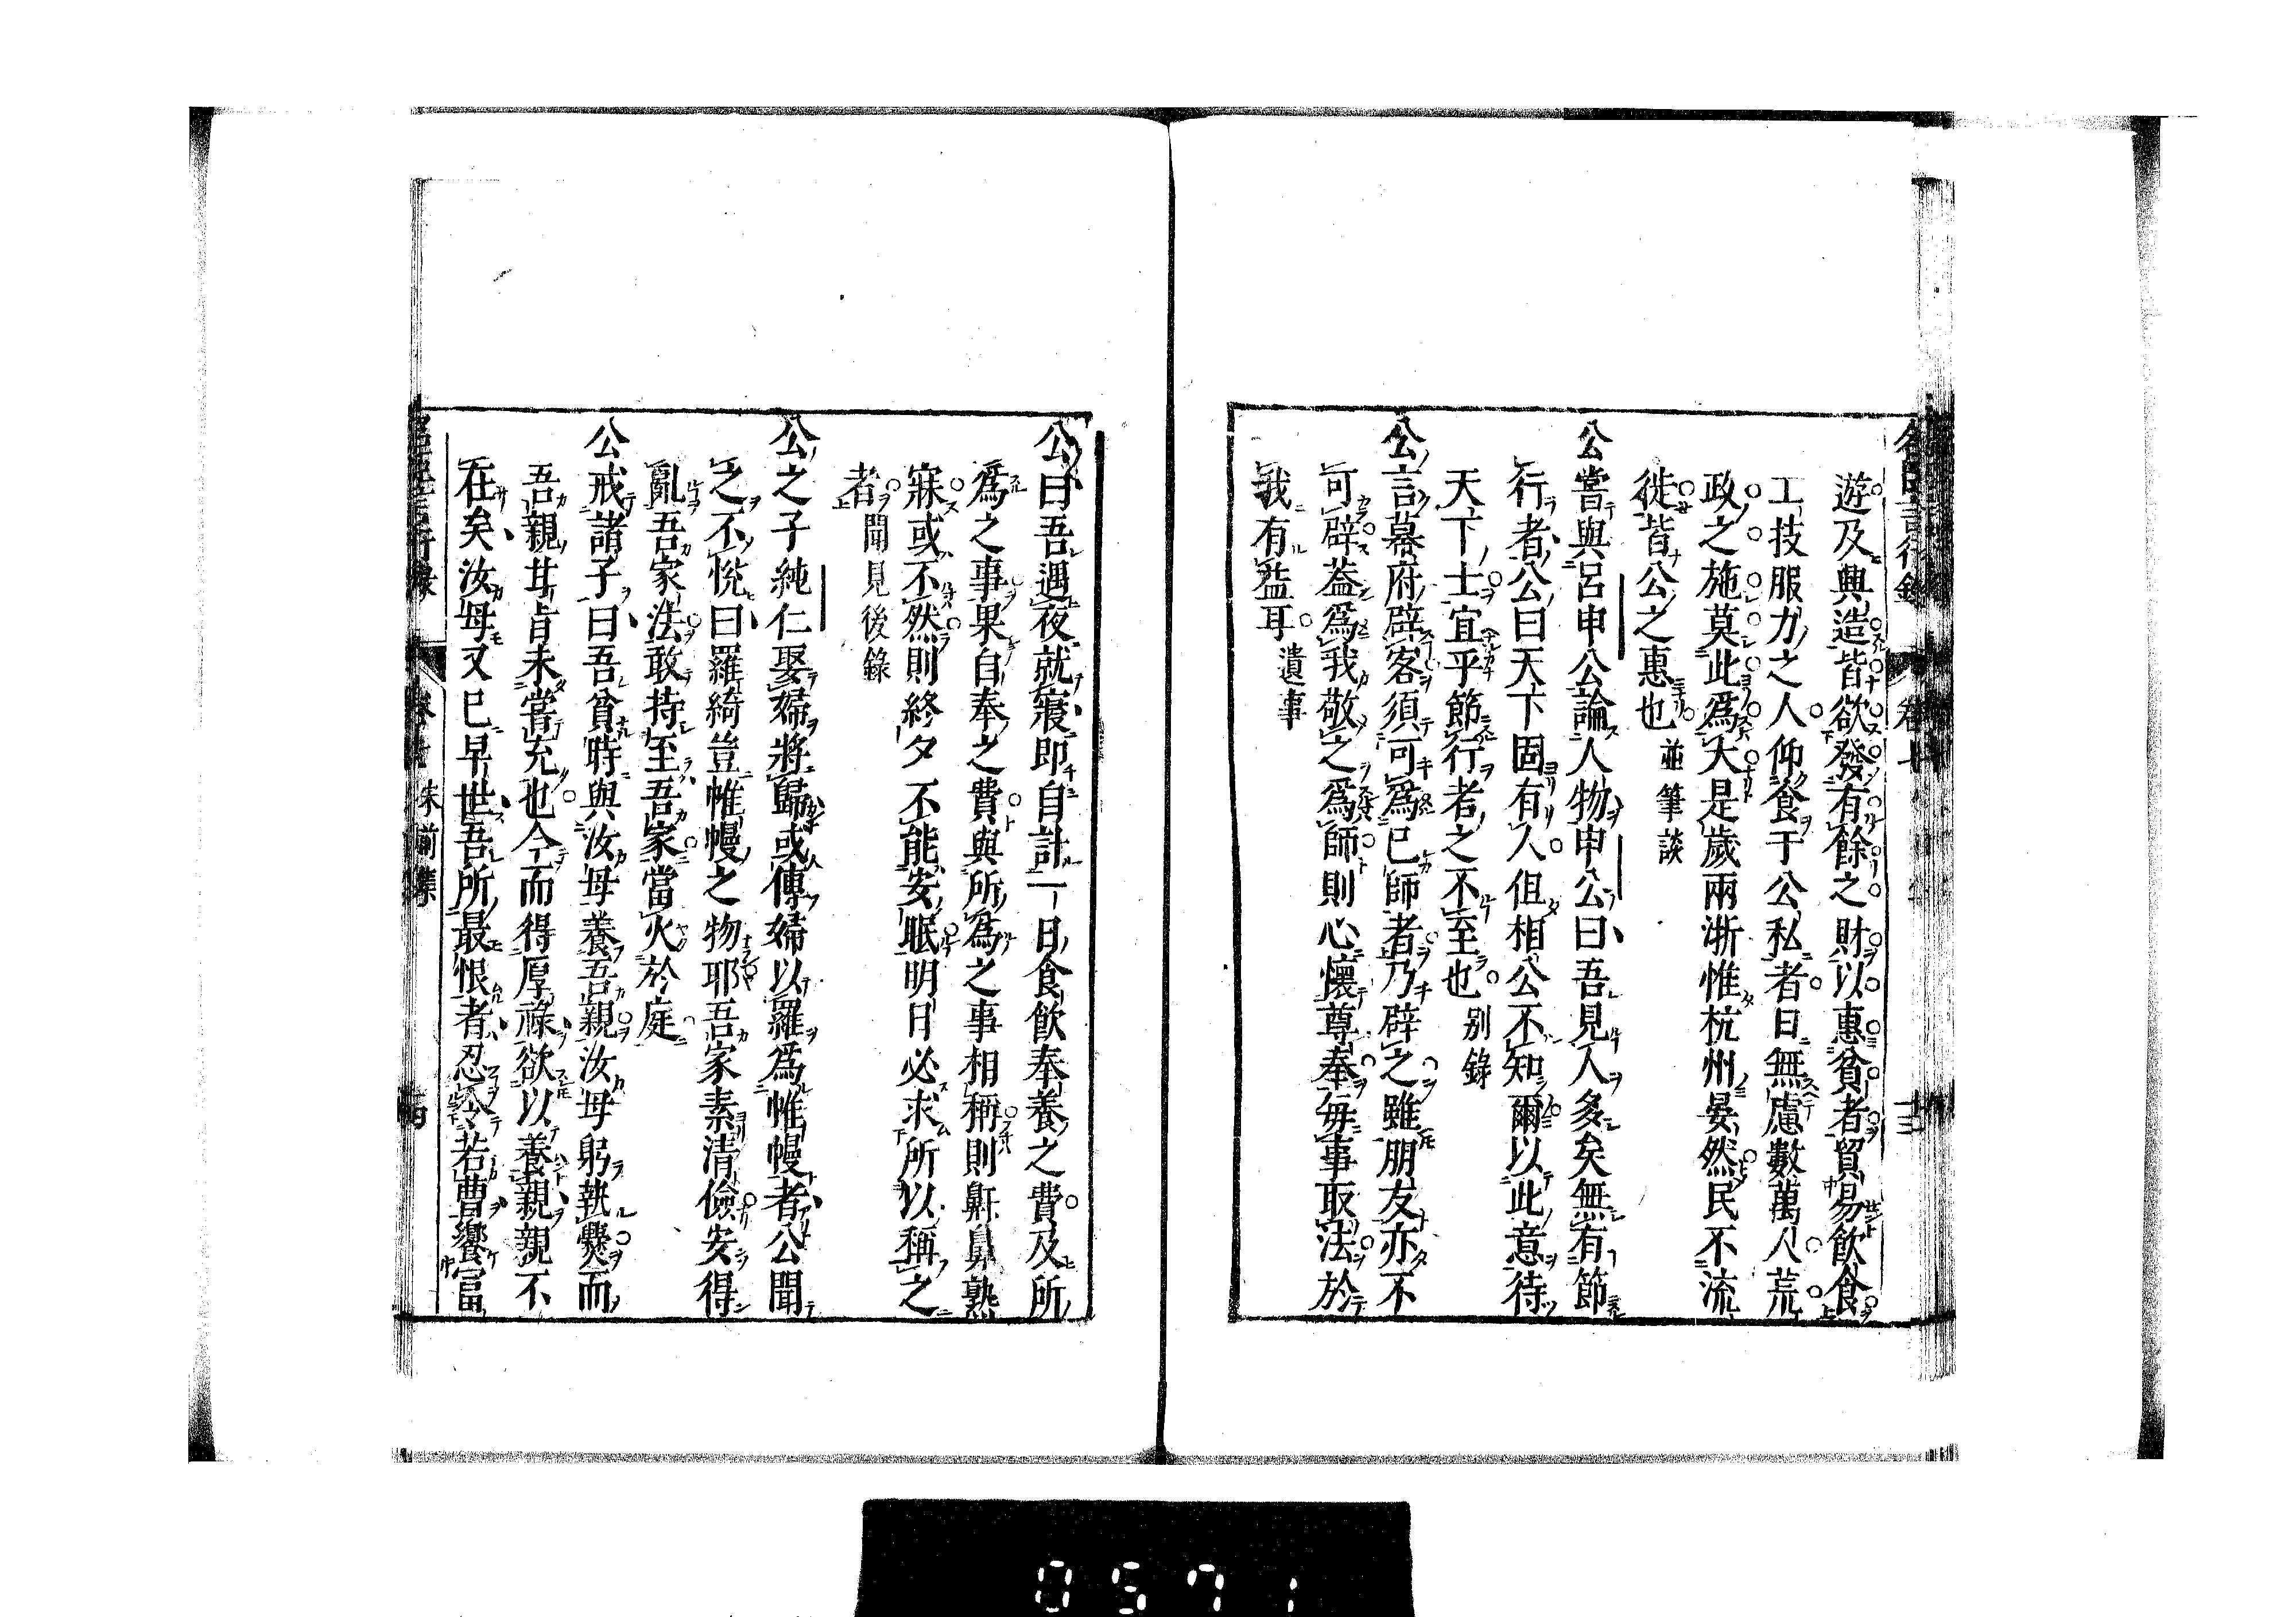 名臣言行錄 卷七 十三
遊及興造皆欲發有餘之財以惠貧者貿易飲食
工技服力之人仰食于公私者日無慮數萬人荒
政之施莫此爲大是歲兩浙惟杭州晏然民不流
徙皆公之惠也 並筆談
公嘗與呂申公論人物申公曰吾見人多矣無有節
行者公曰天下固有人但相公不知爾以此意待
天下士宜乎節行者之不至也 别錄
公言幕府辟客須可爲已師者乃辟之雖朋友亦不
可辟蓋爲我敬之爲師則心懷尊奉每事取法於
我有益耳 遺事
公曰吾遇夜就寢即自計一日食飲奉養之費及所
爲之事果自奉之費與所爲之事相稱則鼾鼻熟
寐或不然則終夕不能安眠明日必求所以稱之
者 聞見後錄
公之子純仁娶婦將歸或傳婦以羅爲帷幔者公聞
之不悅曰羅綺豈帷幔之物耶吾家素清儉安得
亂吾家法敢持至吾家當火於庭
公戒諸子曰吾貧時與汝母養吾親汝母躬執爨而
吾親甘旨未嘗充也今而得厚祿欲以養親親不
在矣汝母又已早世吾所最恨者忍令若曹饗富